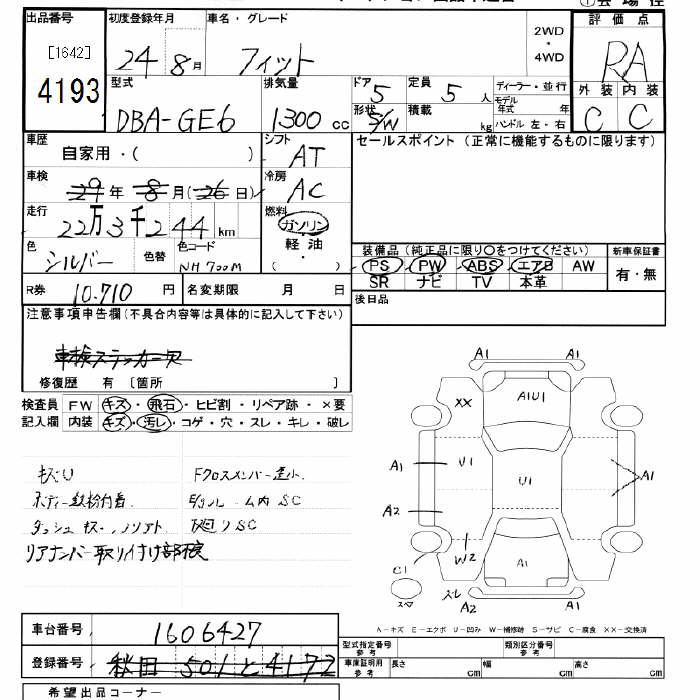 出品番号 初度登録年月 車名・グレード 2WD ・ 4WD 評価点
[1642] 4193 24 8月 フィット RA
型式 排気量 ドア 5 定員 5人 ディーラー・並行 外装 内装
DBA-GE6 1300cc 形状 S/W 積載 kg モデル年式 年 ハンドル 左・右 C C
車歴 シフト セールスポイント (正常に機能するものに限ります)
自家用・( ) AT
車検 29年 8月(26日) 冷房 AC
走行 22万3千244km 燃料 ガソリン
軽油
・
( )
色 シルバー 色替 色コード NH700M
装備品 (純正品に限り〇をつけてください) 新車保証書
PS PW ABS エアB AW 有・無
SR ナビ TV 本革
R券 10.710円 名変期限 月 日 後日品
注意事項申告欄(不具合内容等は具体的に記入して下さい)
車検ステッカー欠
修復歴 有 〔箇所 〕
検査員 FW キズ・飛石・ヒビ割・リペア跡・×要
記入欄 内装 キズ・汚レ・コゲ・穴・スレ・キレ・破レ
キズU Fクロスメンバー歪小
ボディー鉄粉付着 E/gルーム内SC
下廻りSC
リアナンバー取り付け部
A1 A1
XX A1U1
A1 U1 U1 A1
A2
W2 A1
C1
スペア スレ A2 A1
A-キズ E-エクボ U-凹み W-補修跡 S-サビ C-腐食 XX-交換済
車台番号 1606427
登録番号 秋田 501 と 4172
型式指定番号 参考 類別区分番号 参考
車庫証明用 参考 長さ cm 幅 cm 高さ cm
希望出品コーナー